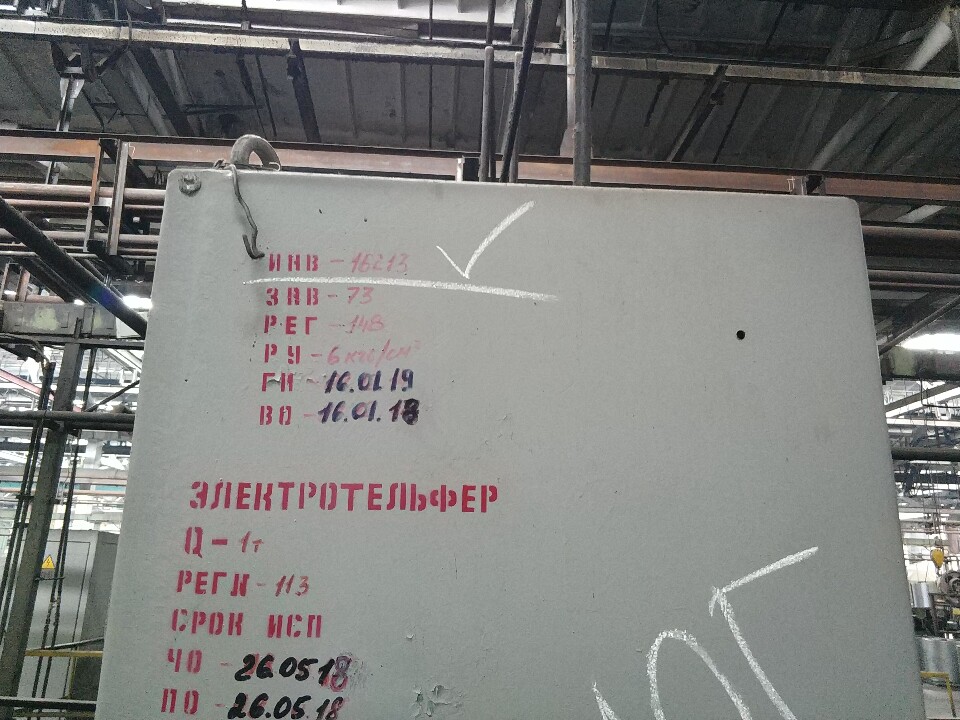 ИНВ - 16213
ЗАВ - 73
РЕГ - 148
РУ - 6 кгс/см²
ГИ - 16.01.19
ВО - 16.01.18
ЭЛЕКТРОТЕЛЬФЕР
Q - 1т
РЕГN - 113
СРОК ИСП
ЧО - 26.05.18
ПО - 26.05.18